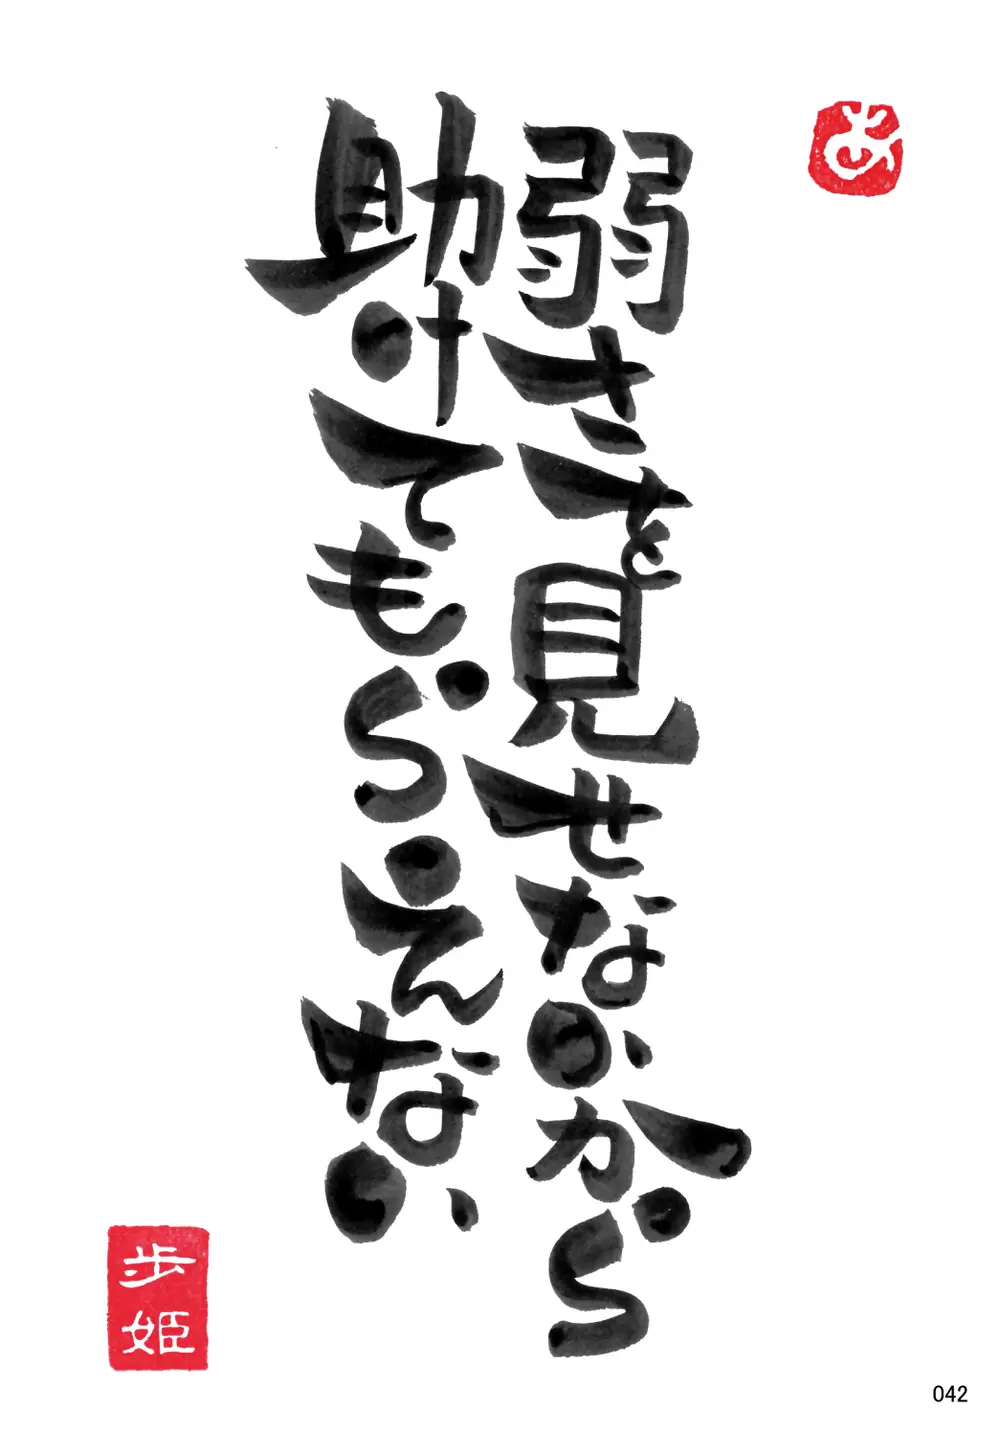 あ
弱さを見せないから
助けてもらえない
歩姫
042